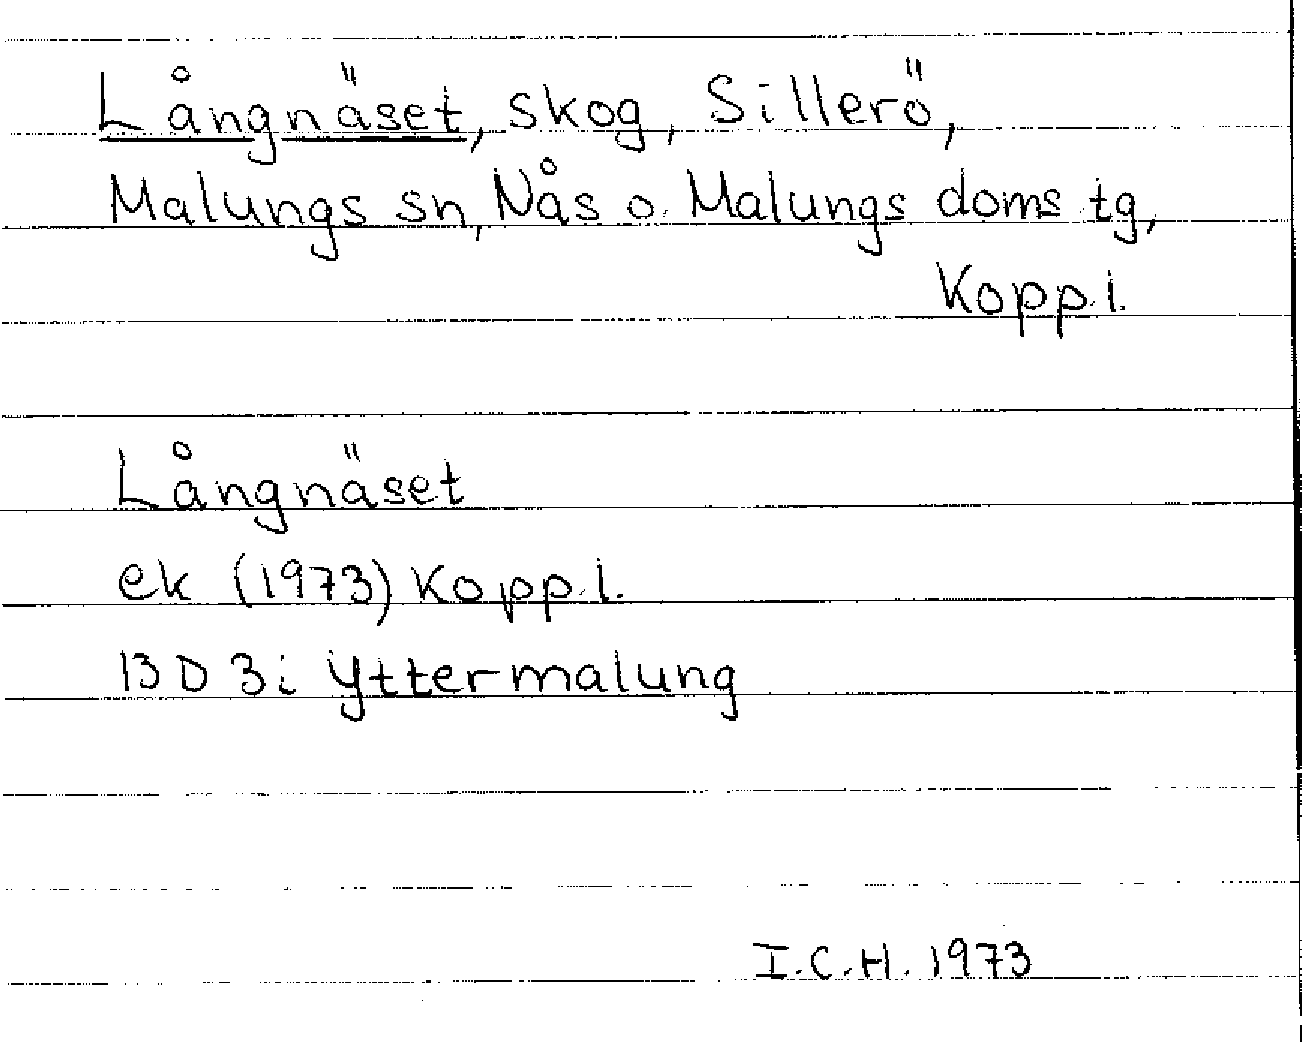 Långnäset, skog, Sillerö,
Malungs sn, Nås o. Malungs doms.tg,
Kopp.l.
Långnäset
ek (1973) Kopp.l.
13 D 3i Yttermalung
I.C.H. 1973